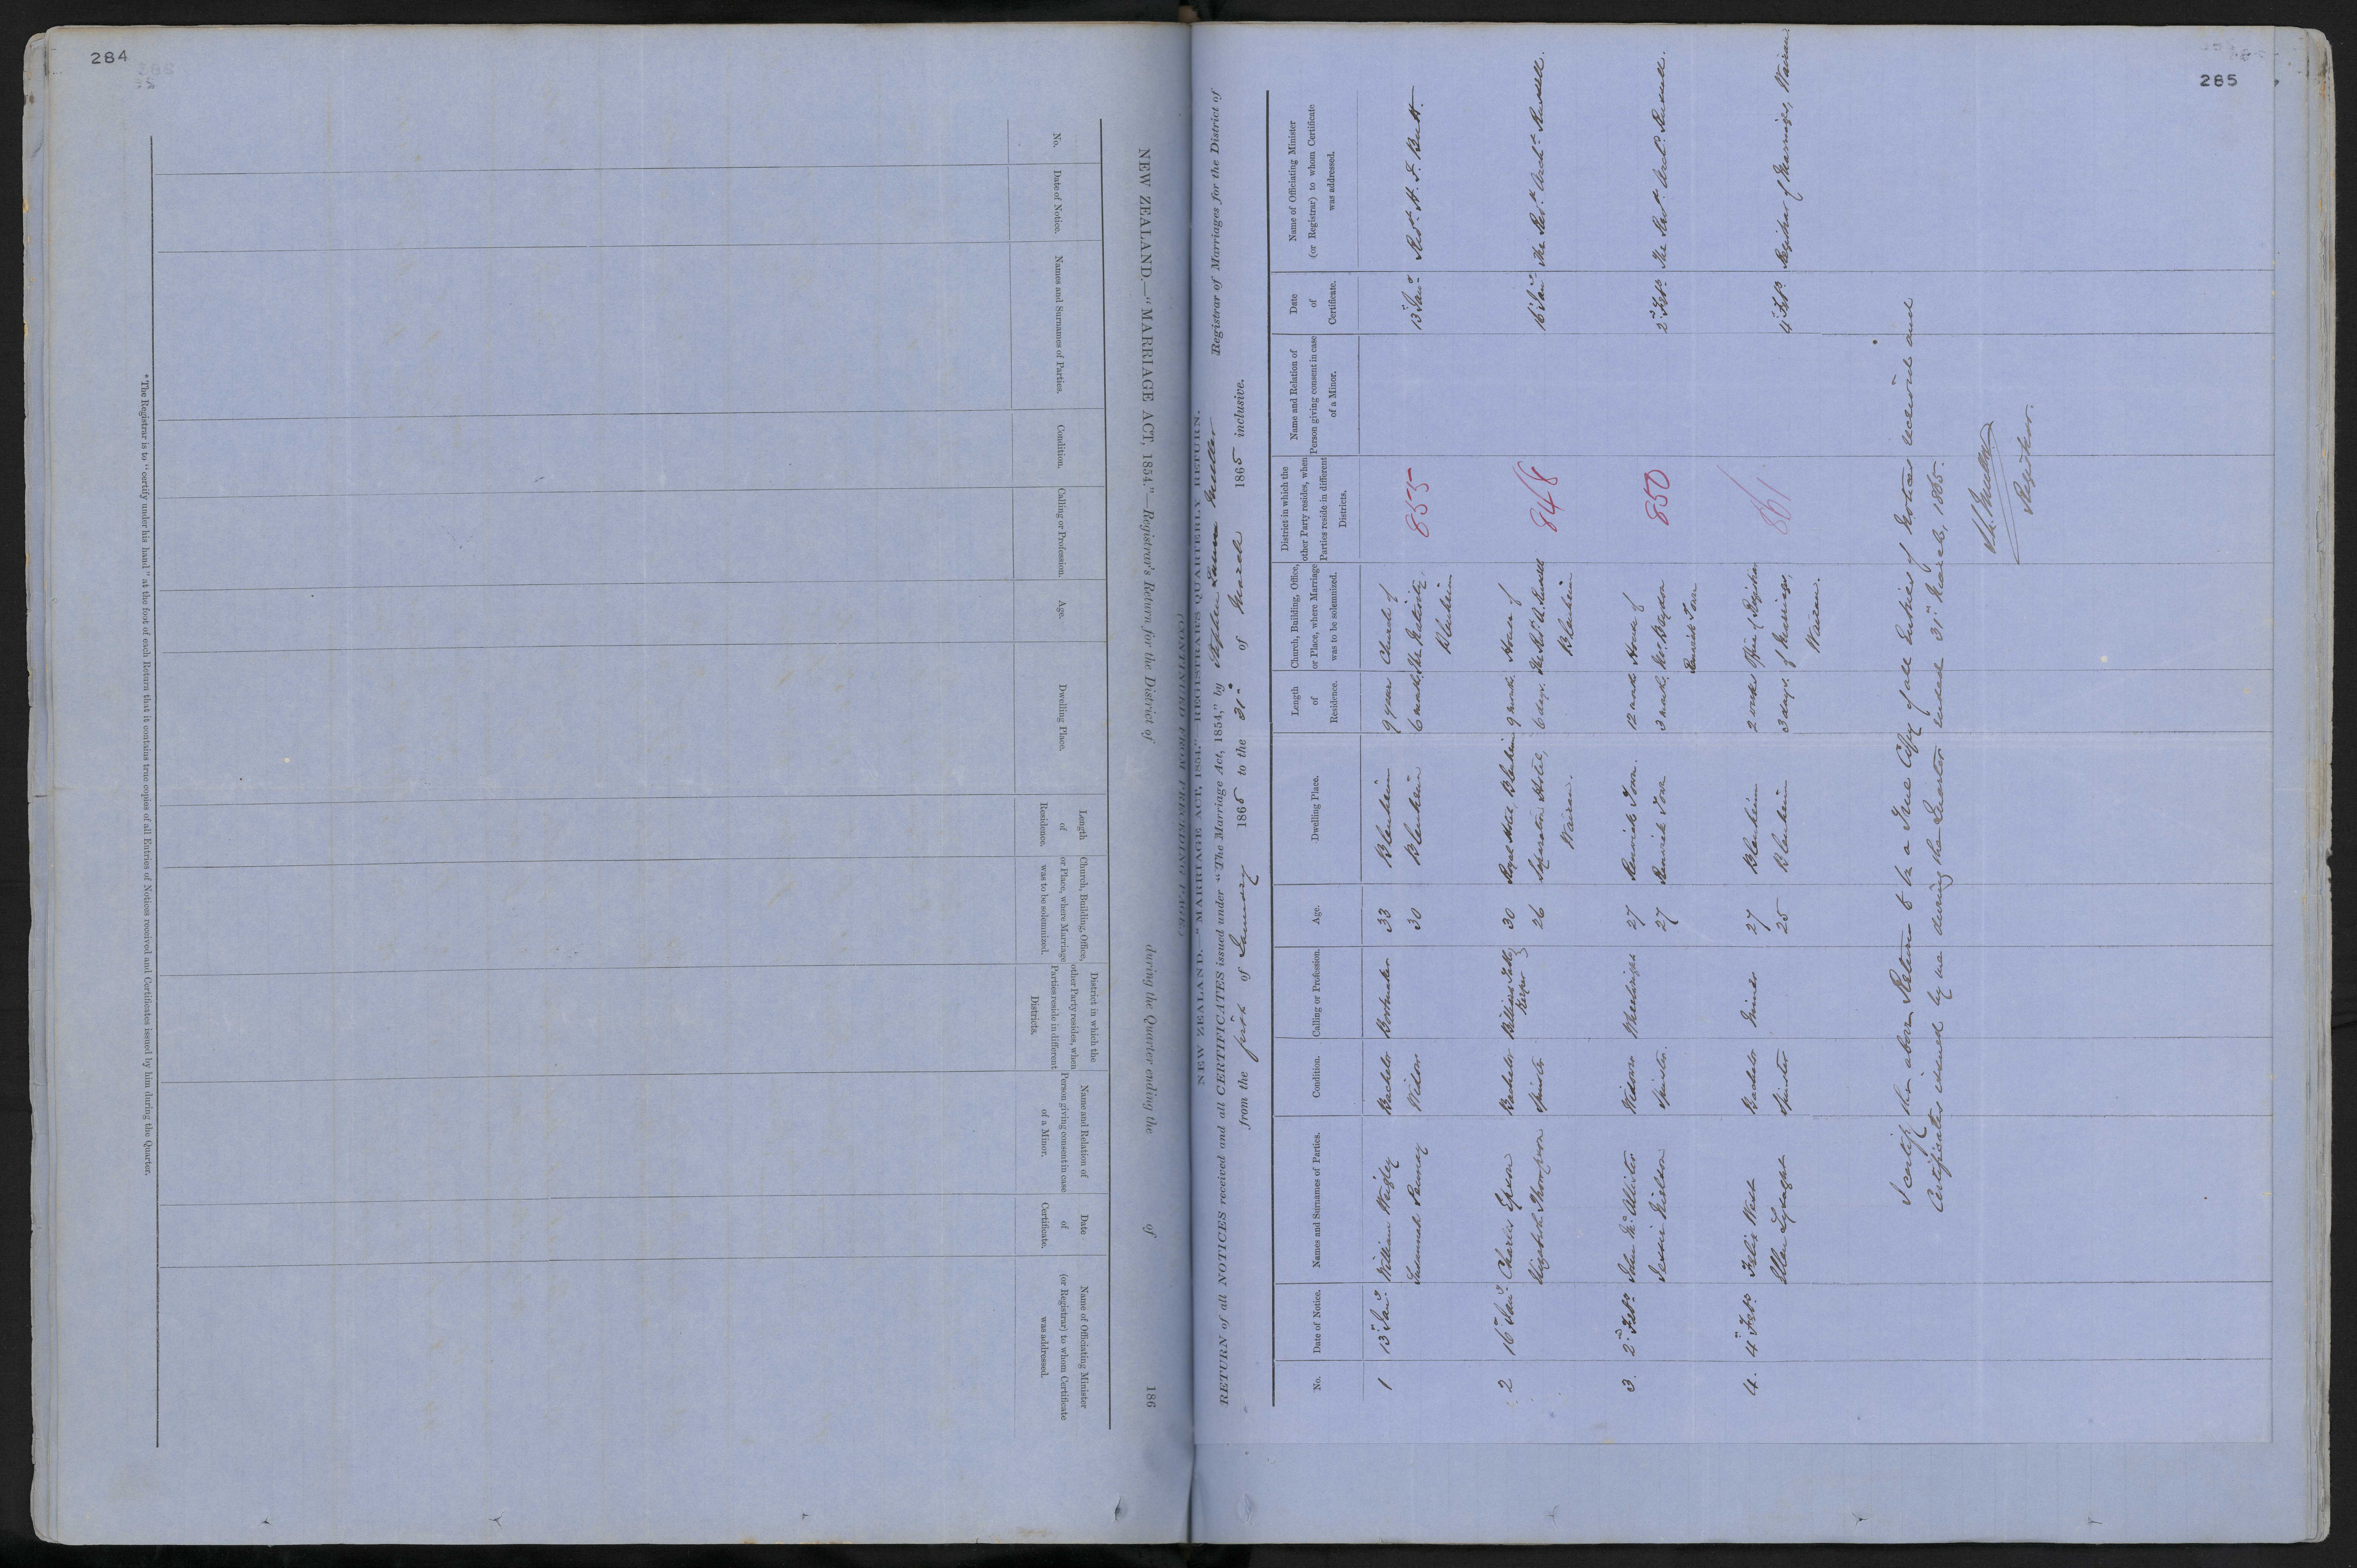 284
NEW ZEALAND.—"MARRIAGE ACT, 1854."—Registrar's Return for the District of during the Quarter ending the of 186
No.
Date of Notice.
Names and Surnames of Parties.
Condition.
Calling or Profession.
Age.
Dwelling Place.
Length of Residence.
Church, Building, Office, or Place, where Marriage was to be solemnized.
District in which the other Party resides, when Parties reside in different Districts.
Name and Relation of Person giving consent in case of a Minor.
Date of Certificate.
Name of Officiating Minister (or Registrar) to whom Certificate was addressed.
* The Registrar is to "certify under his hand" at the foot of each Return that it contains true copies of all Entries of Notices received and Certificates issued by him during the Quarter.
285
NEW ZEALAND. "MARRIAGE ACT, 1854."—REGISTRARS QUARTERLY RETURN.
RETURN of all NOTICES received and all CERTIFICATES issued under "The Marriage Act, 1854," by Stephen Lunn Muller Registrar of Marriages for the District of
from the first of January 1865 to the 31st of March 1865 inclusive.
No.
Date of Notice.
Names and Surnames of Parties.
Condition.
Calling or Profession.
Age.
Dwelling Place.
Length of Residence.
Church, Building, Office, or Place, where Marriage was to be solemnized.
District in which the other Party resides, when Parties reside in different Districts.
Name and Relation of Person giving consent in case of a Minor.
Date of Certificate.
Name of Officiating Minister (or Registrar) to whom Certificate was addressed.
1 13th Jany William Wrigley Bachelor Bootmaker 33 Blenheim 9 years Church of 855 13th Jany Revd. H. F. Butt.
Susannah Widow 30 Blenheim 6 months the Nativity,
Blenheim
2 16th Jany Charles Bachelor Billiard Table Keeper 30 Royal Hotel, Blenheim 9 months House of 848 16th Jany The Revd. Archd. Russell.
Elizabeth Thompson Spinster 26 Hotel, 6 days. the Revd. A. Russell
Wairau. Blenheim
3. 2nd Feby John McAllister Widower Wheelwright 27 Renwick Town. 12 months House of 850 2nd Feby The Revd. Archd. Russell.
Jessie Spinster. 27 Renwick Town 3 months,
Renwick Town
4. 4th Feby Felix West Bachelor Miner 27 Blenheim 2 weeks Office of Registrar 861 4th Feby Registrar of Marriages, Wairau
Ellen Lysaght Spinster 25 Blenheim 3 days. of Marriages,
Wairau.
I certify the above Return to be a True Copy of all Entries of Notices received and
Certificates issued by me during the Quarter ended 31st March, 1865.
S. L. Muller
Registrar.